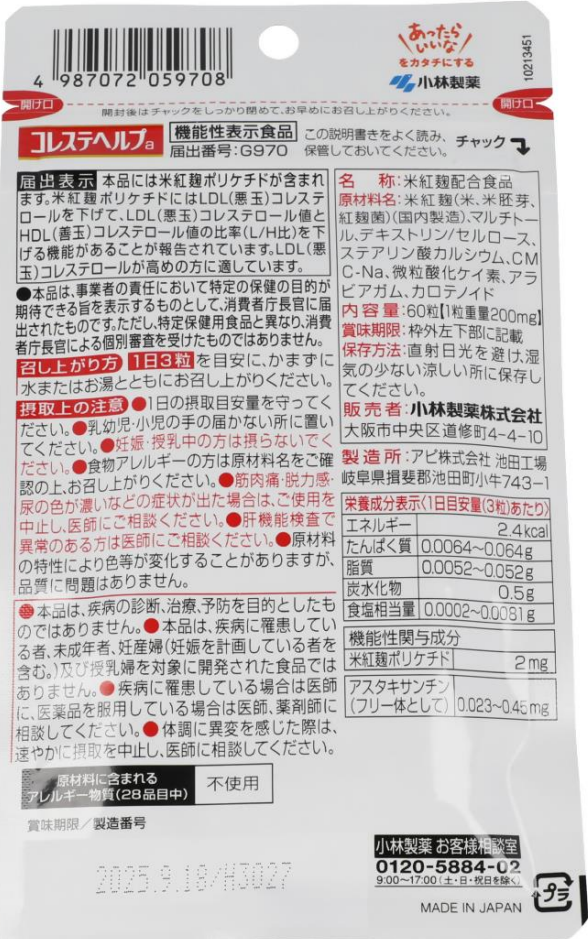 あったら
いいな
をカタチにする
小林製薬
10213451
4 987072 059708
開け口
開け口
開封後はチャックをしっかり閉めて、お早めにお召し上がりください。
コレステヘルプa
機能性表示食品
届出番号:G970
この説明書きをよく読み、
保管しておいてください。
チャック
届出表示 本品には米紅麹ポリケチドが含まれ
ます。米紅麹ポリケチドにはLDL(悪玉)コレステ
ロールを下げて、LDL(悪玉)コレステロール値と
HDL(善玉)コレステロール値の比率(L/H比)を下
げる機能があることが報告されています。LDL(悪
玉)コレステロールが高めの方に適しています。
●本品は、事業者の責任において特定の保健の目的が
期待できる旨を表示するものとして、消費者庁長官に届
出されたものです。ただし、特定保健用食品と異なり、消費
者庁長官による個別審査を受けたものではありません。
召し上がり方 1日3粒を目安に、かまずに
水またはお湯とともにお召し上がりください。
摂取上の注意 ●1日の摂取目安量を守ってく
ださい。●乳幼児・小児の手の届かない所に置い
てください。●妊娠・授乳中の方は摂らないでく
ださい。●食物アレルギーの方は原材料名をご確
認の上、お召し上がりください。●筋肉痛・脱力感・
尿の色が濃いなどの症状が出た場合は、ご使用を
中止し、医師にご相談ください。●肝機能検査で
異常のある方は医師にご相談ください。●原材料
の特性により色等が変化することがありますが、
品質に問題はありません。
●本品は、疾病の診断、治療、予防を目的としたも
のではありません。●本品は、疾病に罹患してい
る者、未成年者、妊産婦(妊娠を計画している者を
含む。)及び授乳婦を対象に開発された食品では
ありません。●疾病に罹患している場合は医師
に、医薬品を服用している場合は医師、薬剤師に
相談してください。●体調に異変を感じた際は、
速やかに摂取を中止し、医師に相談してください。
原材料に含まれる
アレルギー物質(28品目中)
不使用
賞味期限/製造番号
2025.9.18/H3027
名 称:米紅麹配合食品
原材料名:米紅麹(米、米胚芽、
紅麹菌)(国内製造)、マルチトー
ル、デキストリン/セルロース、
ステアリン酸カルシウム、CM
C-Na、微粒酸化ケイ素、アラ
ビアガム、カロテノイド
内容量:60粒【1粒重量200mg】
賞味期限:枠外左下部に記載
保存方法:直射日光を避け、湿
気の少ない涼しい所に保存し
てください。
販売者:小林製薬株式会社
大阪市中央区道修町4-4-10
製造所:アピ株式会社 池田工場
岐阜県揖斐郡池田町小牛743-1
栄養成分表示〈1日目安量(3粒)あたり〉
エネルギー 2.4kcal
たんぱく質 0.0064~0.064g
脂質 0.0052~0.052g
炭水化物 0.5g
食塩相当量 0.0002~0.0081g
機能性関与成分
米紅麹ポリケチド 2mg
アスタキサンチン
(フリー体として) 0.023~0.45mg
小林製薬 お客様相談室
0120-5884-02
9:00~17:00(土・日・祝日を除く)
MADE IN JAPAN
プラ